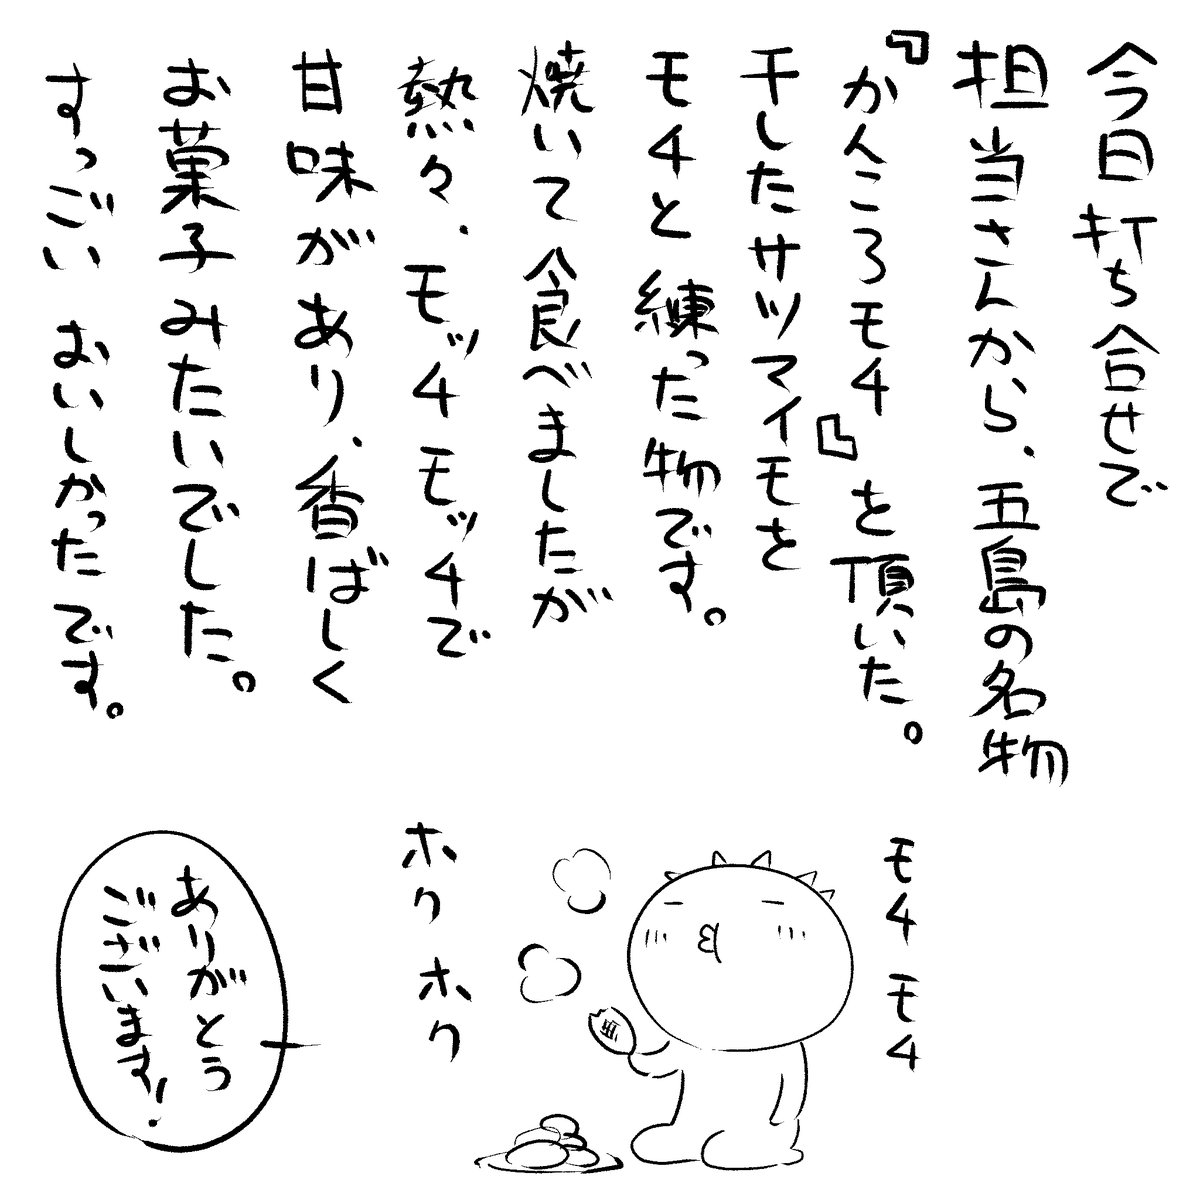 今日打ち合せで
担当さんから、五島の名物
『かんころモチ』を頂いた。
干したサツマイモを
モチと練った物です。
焼いて食べましたが
熱々、モッチモッチで
甘味があり、香ばしく
お菓子みたいでした。
すっごいおいしかったです。
モチモチ
ホクホク
ありがとう
ございます!